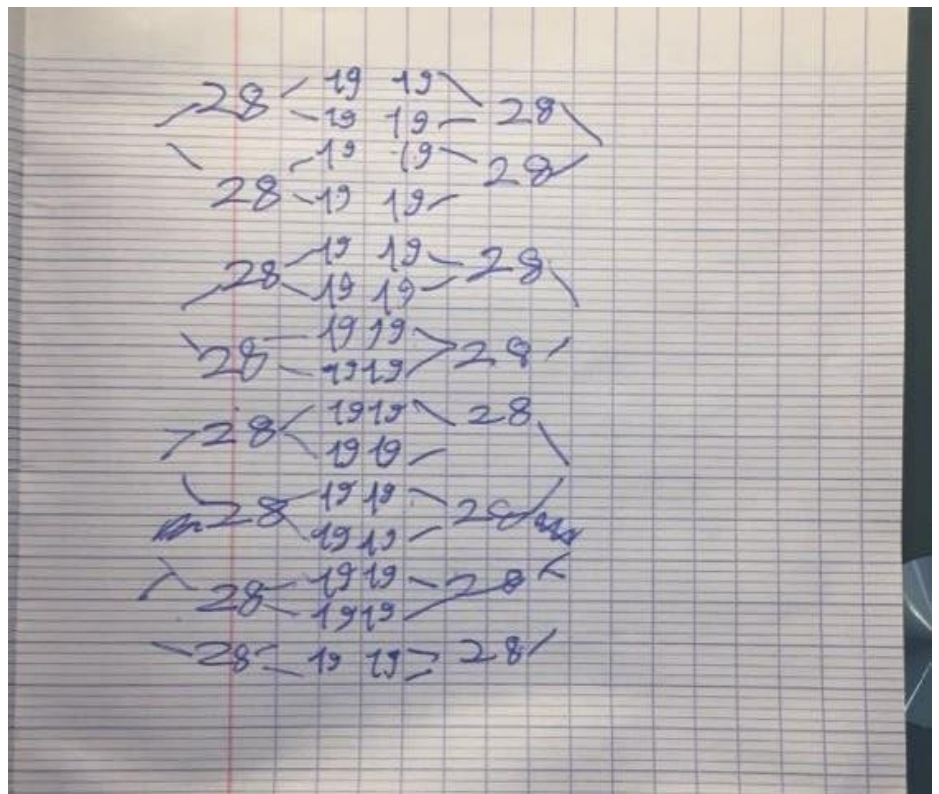 28 19 19 28
19 19
19 19 28
28 19 19
28 19 19 28
19 19
19 19
28 19 19 28
19 19 28
28 19 19
19 19
28 19 19 28
19 19 28
28 19 19
28 19 19 28